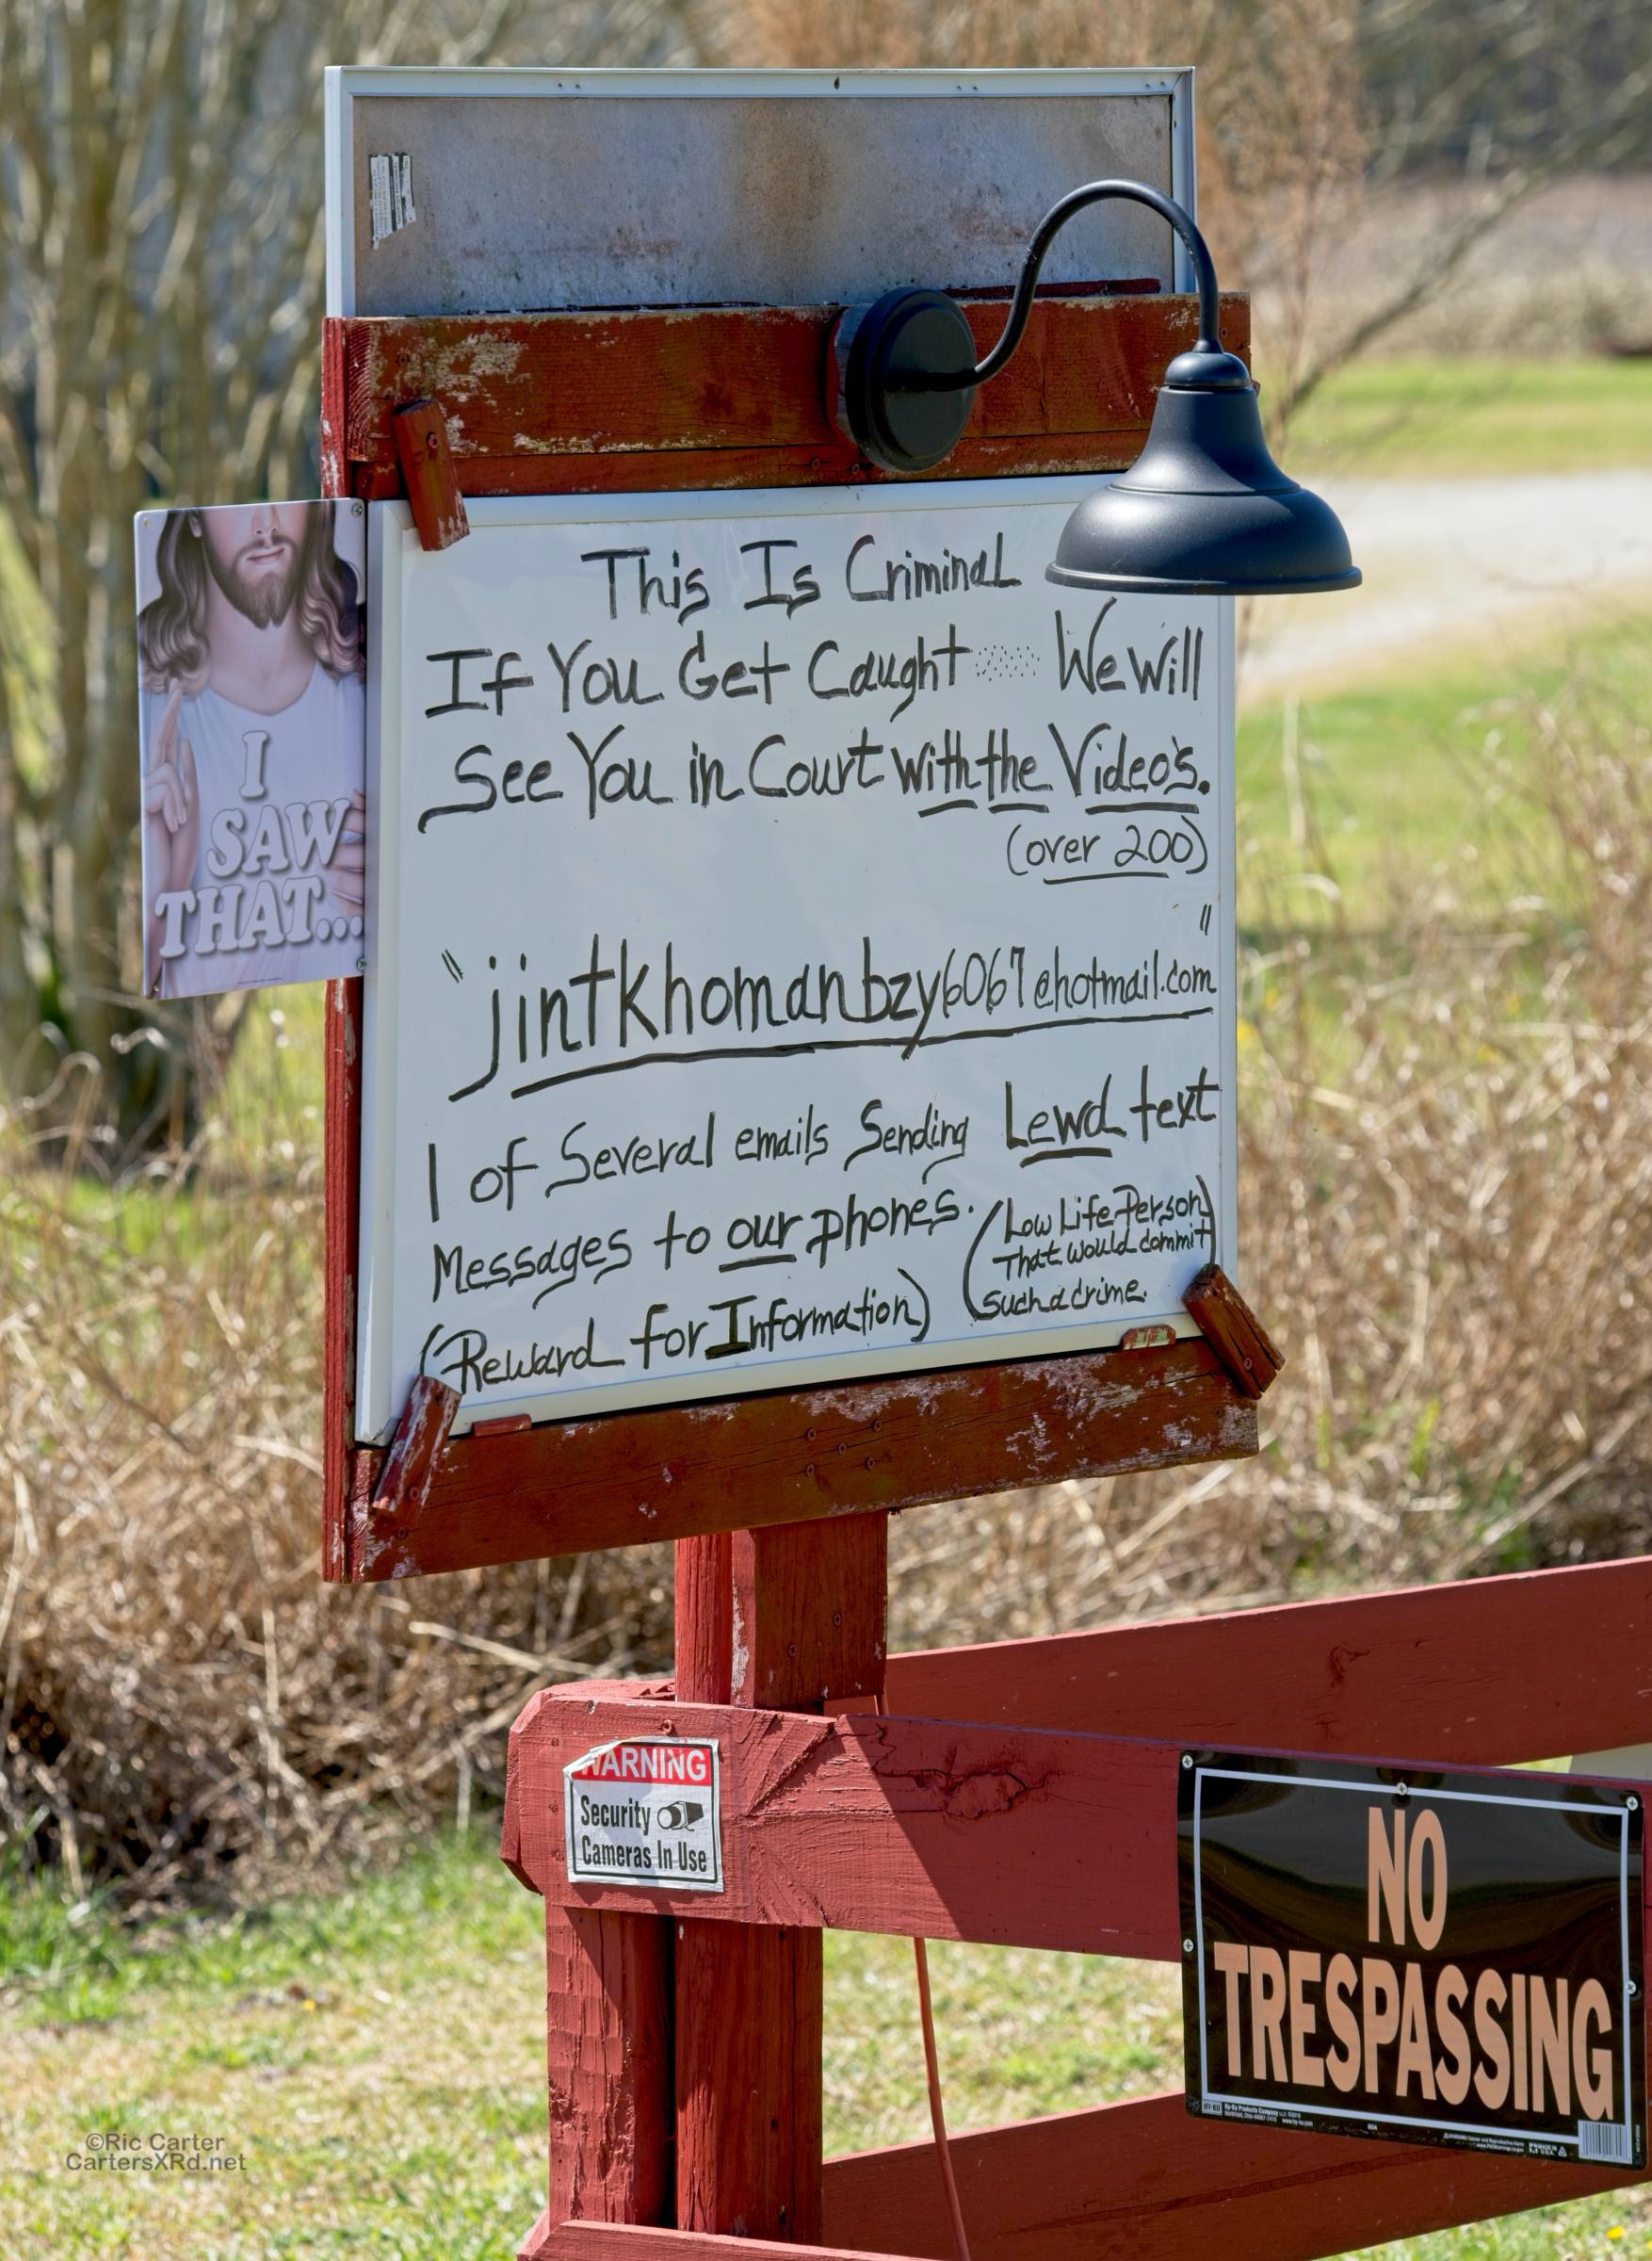 This Is Criminal
If You Get Caught We Will
See You in Court with the Video's.
(over 200)
"jintkhomanbzy6067@hotmail.com"
1 of Several emails Sending Lewd text
Messages to our phones.
(Low Life Person)
That would commit
such a crime.
(Reward for Information)
I
SAW
THAT...
WARNING
Security
Cameras In Use
NO
TRESPASSING
©Ric Carter
CartersXRd.net